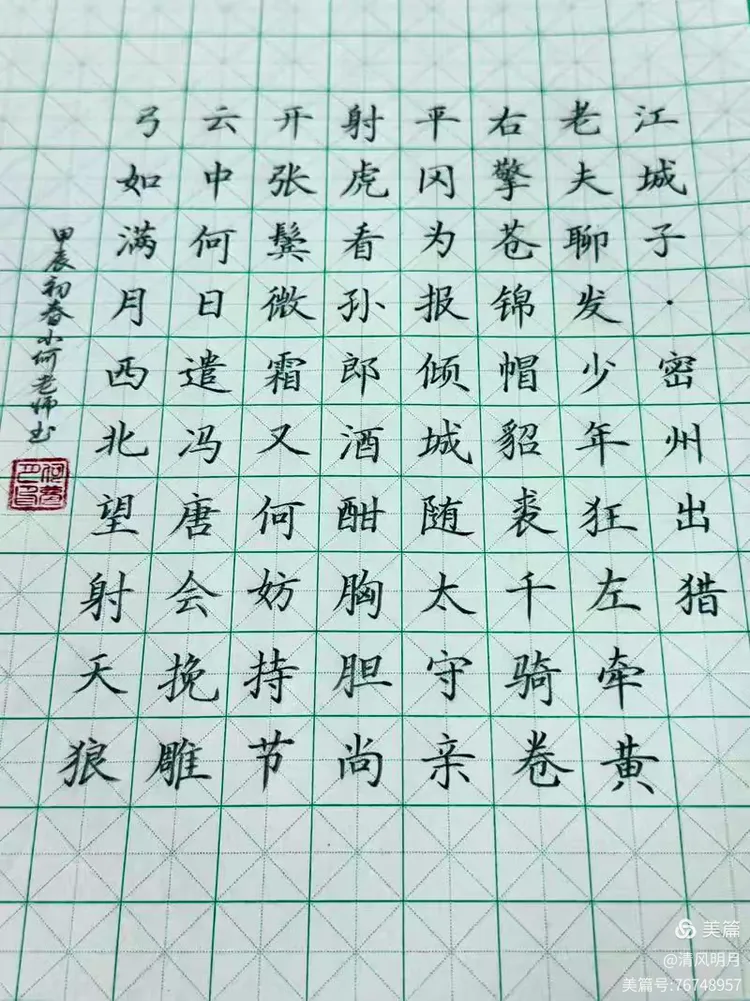 江城子·密州出猎
老夫聊发少年狂左牵黄
右擎苍锦帽貂裘千骑卷
平冈为报倾城随太守亲
射虎看孙郎酒酣胸胆尚
开张鬓微霜又何妨持节
云中何日遣冯唐会挽雕
弓如满月西北望射天狼
甲辰初春小何老师书
美篇
@清风明月
美篇号:76748957